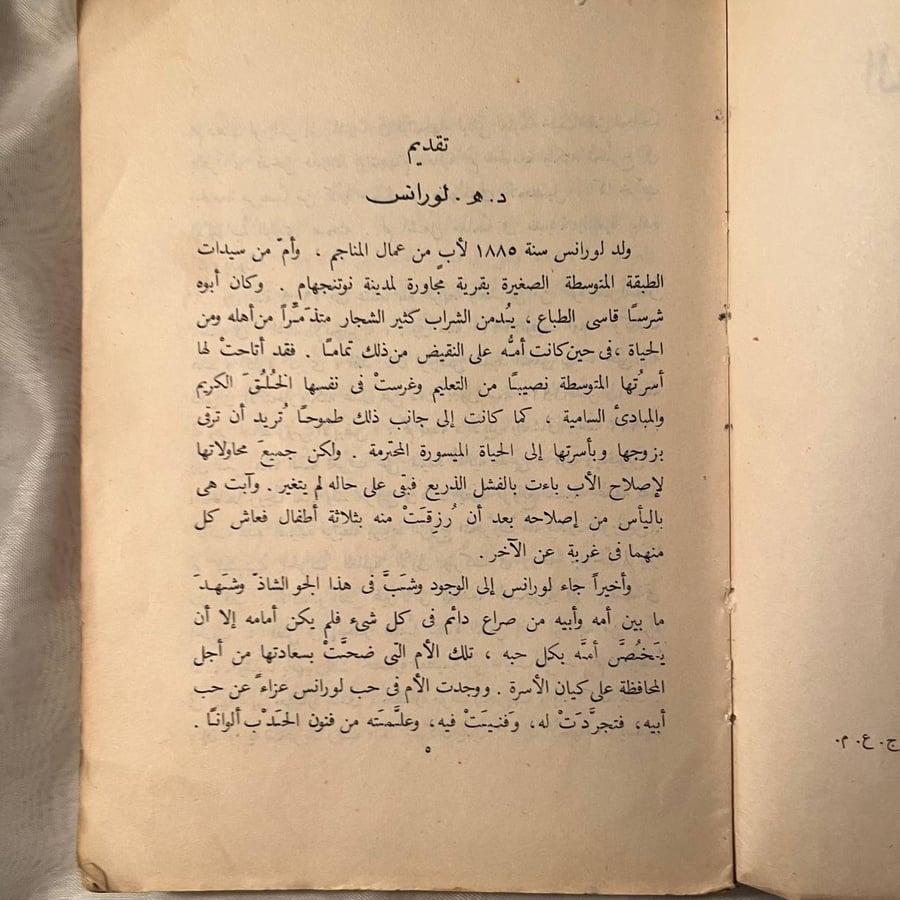 تقديم
د. ه. لورانس
ولد لورانس سنة ١٨٨٥ لأبٍ من عمال المناجم ، وأمّ من سيدات
الطبقة المتوسطة الصغيرة بقرية مجاورة لمدينة نوتنجهام . وكان أبوه
شرسًا قاسى الطباع ، يُدمن الشراب كثير الشجار متذمّرًا من أهله ومن
الحياة ، فى حين كانت أمُّه على النقيض من ذلك تمامًا . فقد أتاحتْ لها
أسرتُها المتوسطة نصيبًا من التعليم وغرستْ فى نفسها الخُلُقَ الكريم
والمبادئ السامية ، كما كانت إلى جانب ذلك طموحًا تُريد أن ترقى
بزوجها وبأسرتها إلى الحياة الميسورة المحترمة . ولكن جميعَ محاولاتها
لإصلاح الأب باءت بالفشل الذريع فبقى على حاله لم يتغير . وآبت هى
باليأس من إصلاحه بعد أن رُزِقَتْ منه بثلاثة أطفال فعاش كل
منهما فى غربة عن الآخر .
وأخيراً جاء لورانس إلى الوجود وشَبَّ فى هذا الجو الشاذّ وشَهِدَ
ما بين أمه وأبيه من صراع دائم فى كل شىء فلم يكن أمامه إلا أن
يَخُصَّ أمَّه بكل حبه ، تلك الأم التى ضحَّتْ بسعادتها من أجل
المحافظة على كيان الأسرة . ووجدت الأم فى حب لورانس عزاءً عن حب
أبيه، فتجرَّدَتْ له، وَفَنِيَتْ فيه، وعلَّمَته من فنون الحَدْب ألوانًا .
٥
ج. ع. م.